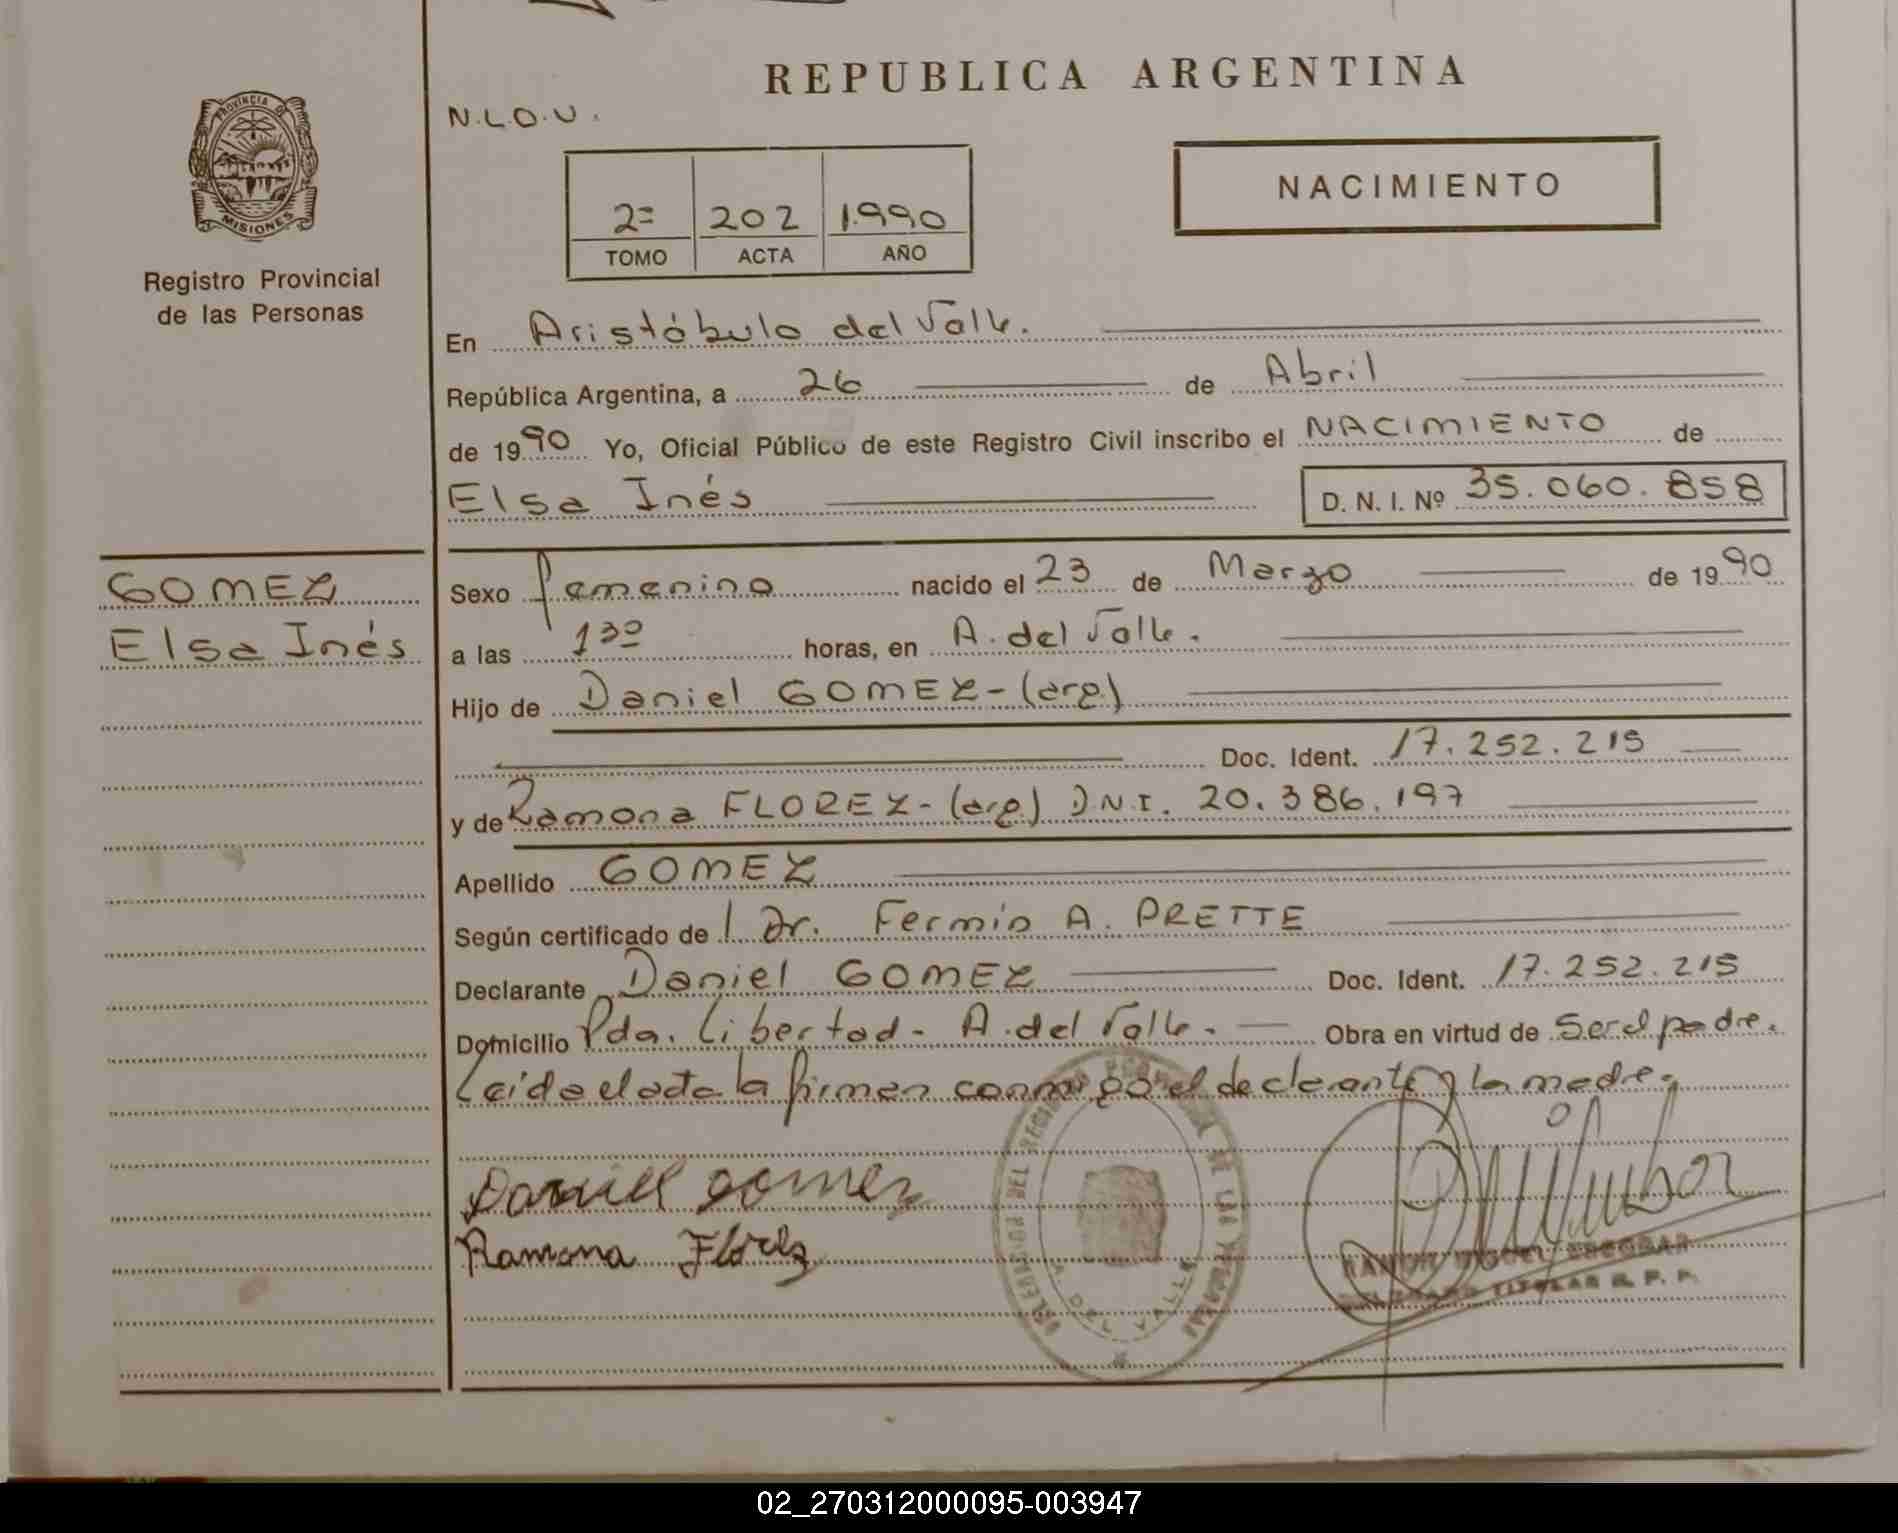 REPUBLICA ARGENTINA
N.L.O.U.
PROVINCIA DE
MISIONES
Registro Provincial
de las Personas
2= 202 1.990
TOMO ACTA AÑO
NACIMIENTO
En Aristóbulo del Valle.
República Argentina, a 26 de Abril
de 1990 Yo, Oficial Público de este Registro Civil inscribo el NACIMIENTO de
Elsa Inés D. N. I. Nº 35.060.858
GOMEZ
Elsa Inés
Sexo femenino nacido el 23 de Marzo de 1990
a las 1 30 horas, en A. del Valle.
Hijo de Daniel GOMEZ-(arg.)
Doc. Ident. 17.252.215
y de Ramona FLOREZ-(arg.) D.N.I. 20.386.197
Apellido GOMEZ
Según certificado de l Dr. Fermín A. PRETTE
Declarante Daniel GOMEZ Doc. Ident. 17.252.215
Domicilio Pda. Libertad- A. del Valle. Obra en virtud de Ser el padre.
Leida el acta la firman conmigo el declarante y la madre.
Daniel gomez
Ramona Florez
A. DEL VALLE
RAMON MIGUEL ESCOBAR
TITULAR R. P. P.
02_270312000095-003947